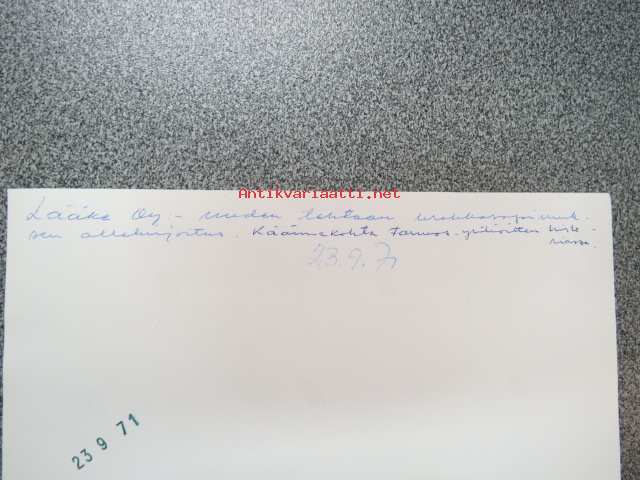 Antikvariaatti.net
Lääke Oy:- uuden tehtaan urakkasopimuk-
sen allekirjoitus. Käännekohta Farmos-yhtiöitten histo-
riassa.
23.9.71
23 9 71